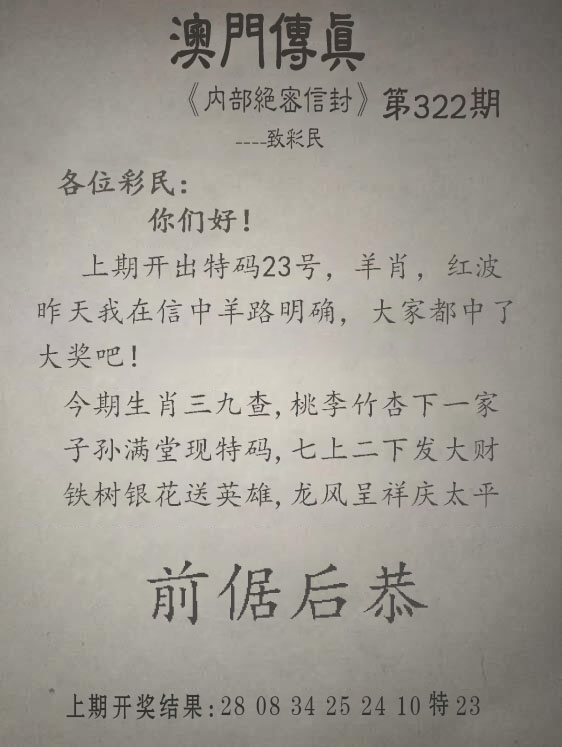 澳門傳眞
《内部絕密信封》第322期
----致彩民
各位彩民：
你们好！
上期开出特码23号，羊肖，红波
昨天我在信中羊路明确，大家都中了
大奖吧！
今期生肖三九查,桃李竹杏下一家
子孙满堂现特码,七上二下发大财
铁树银花送英雄,龙风呈祥庆太平
前倨后恭
上期开奖结果:28 08 34 25 24 10 特 23